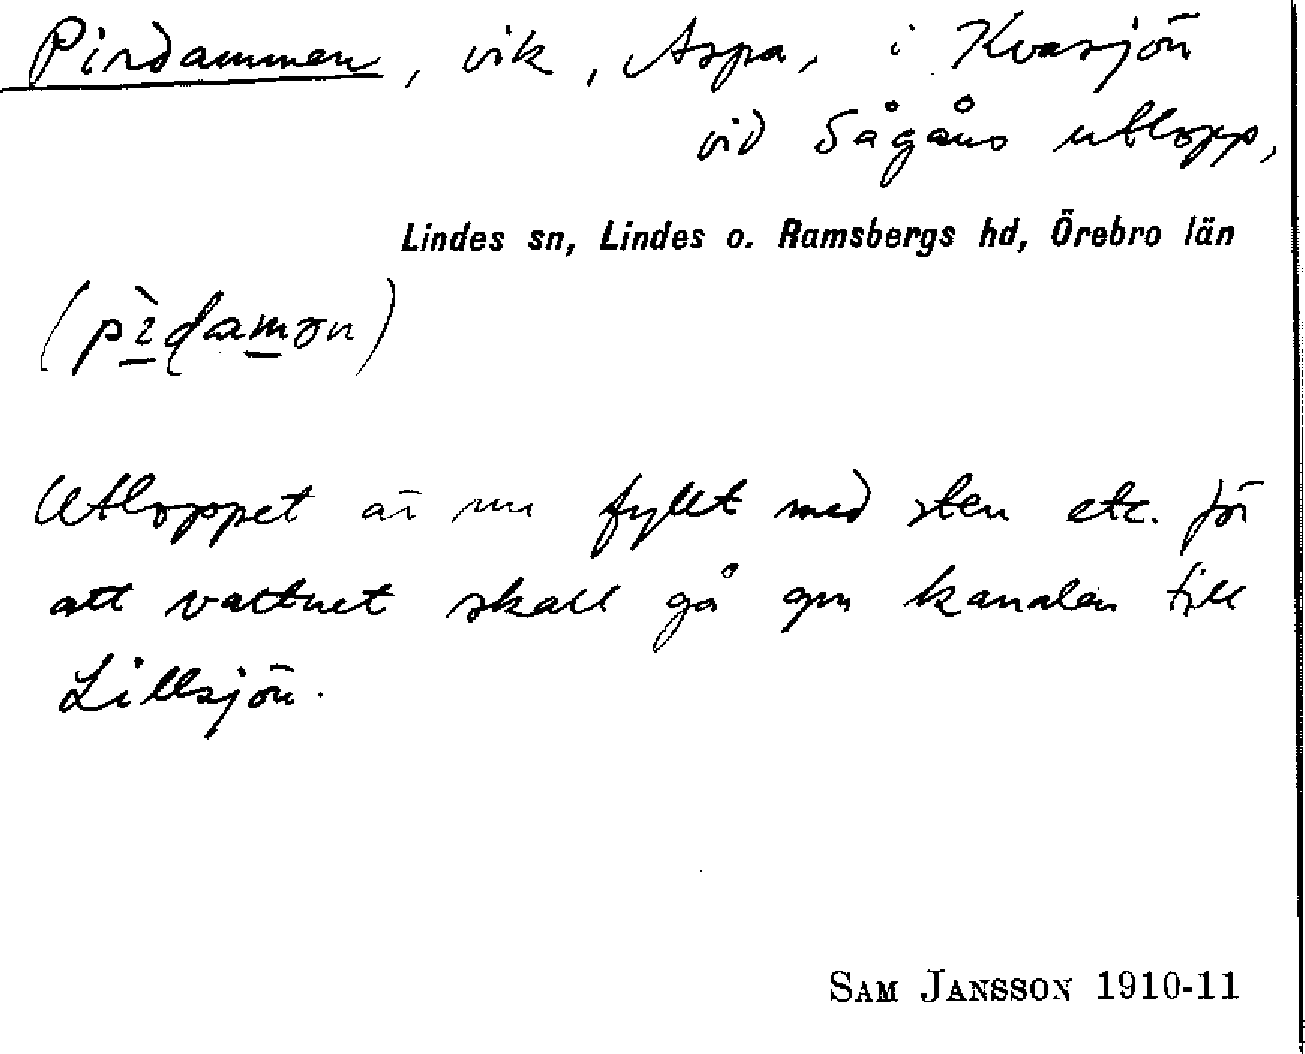 Pirdammen, vik, Aspa, i Kvarsjön
vid Sågåns utlopp,
Lindes sn, Lindes o. Ramsbergs hd, Örebro län
Utloppet är nu fyllt med sten etc. för
att vattnet skall gå gm kanalen till
Lillsjön.
SAM JANSSON 1910-11